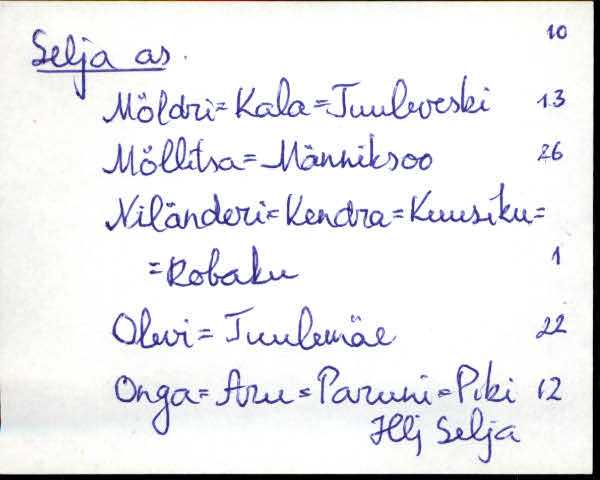 10
Selja as.
Möldri=Kala=Tuuleveski 13
Möllitsa=Männiksoo 26
Niländeri=Kendra=Kuusiku=
=Robaku 1
Olevi=Tuulemäe 22
Onga=Aru=Paruni=Piki 12
Hlj Selja